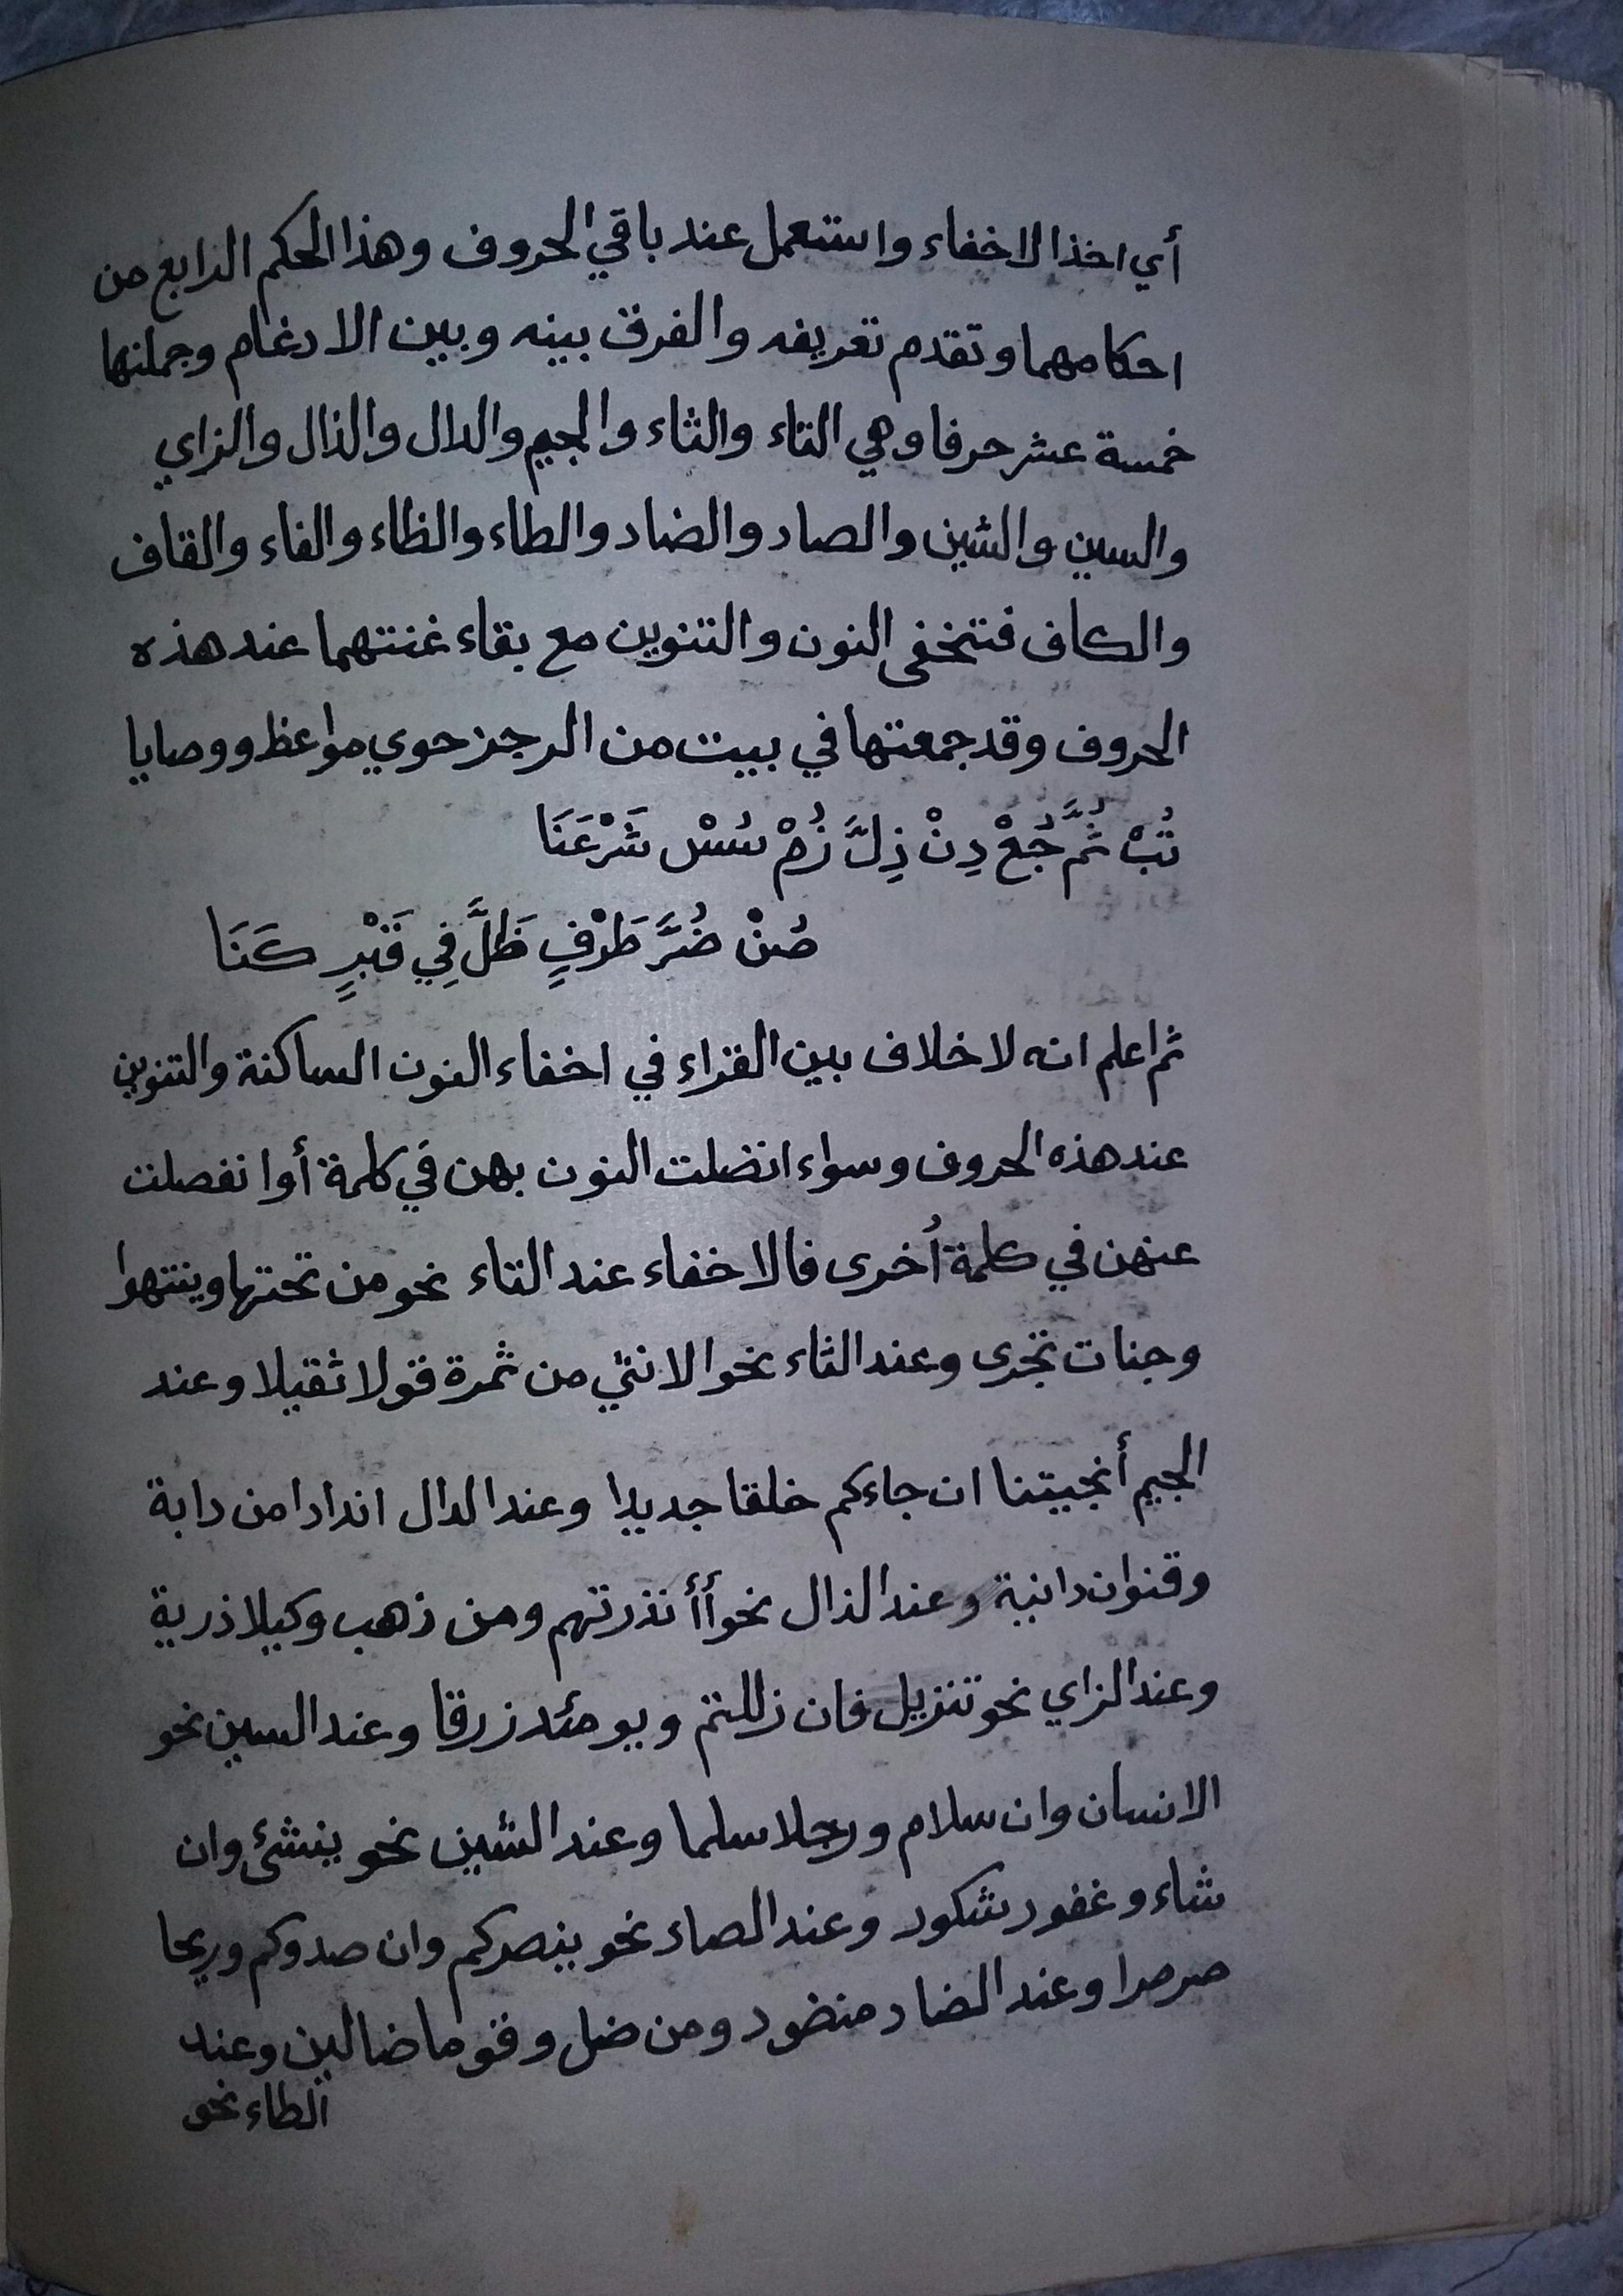 أي اخذا الاخفاء واستعمل عند باقي الحروف وهذا الحكم الرابع من
احكامهما وتقدم تعريفه والفرق بينه وبين الادغام وجملتها
خمسة عشر حرفا وهي التاء والثاء والجيم والدال والذال والزاي
والسين والشين والصاد والضاد والطاء والظاء والفاء والقاف
والكاف فتخفى النون والتنوين مع بقاء غنتهما عند هذه
الحروف وقد جمعتها في بيت من الرجز حوي مواعظ ووصايا
تُبْ ثُمَّ جُعْ دِنْ ذِلَّ زُمْ سُسْ شَرْعَنَا
صُنْ ضُرَّ طَرْفٍ ظَلَّ فِي قَبْرٍ كَنَا
ثم اعلم انه لا خلاف بين القراء في اخفاء النون الساكنة والتنوين
عند هذه الحروف وسواء اتصلت النون بهن في كلمة أو انفصلت
عنهن في كلمة أُخرى فالاخفاء عند التاء نحو من تحتها وينتهوا
وجنات تجرى وعند الثاء نحو الانثي من ثمرة قولا ثقيلا وعند
الجيم أنجيتنا ان جاءكم خلقا جديدا وعند الدال اندادا من دابة
وقنوان دانية وعند الذال نحو أأنذرتهم ومن ذهب وكيلا ذرية
وعند الزاي نحو تنزيل فان زللتم ويومئد زرقا وعند السين نحو
الانسان وان سلام ورجلا سلما وعند الشين نحو ينشئ وان
شاء وغفور شكور وعند الصاد نحو ينصركم وان صدوكم وريحا
صرصرا وعند الضاد منضود ومن ضل وقوما ضالين وعند
الطاء نحو